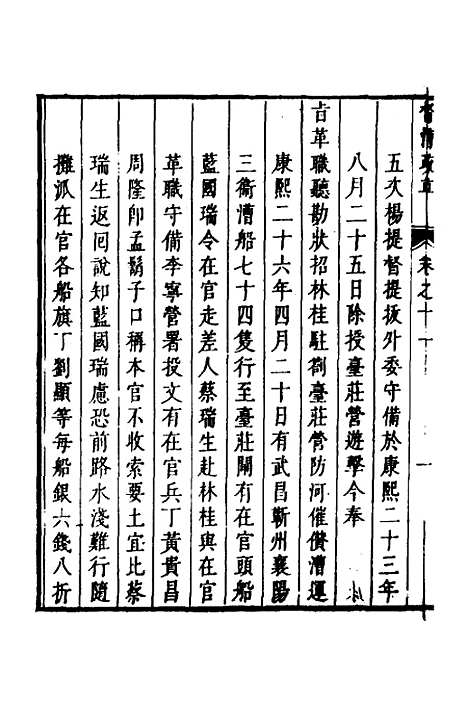 督漕疏草 卷之十一 一
五次楊提督提拔外委守備於康熙二十三年
八月二十五日除授臺莊營遊擊今奉
旨革職聽勘狀招林桂駐劄臺莊營防河催儧漕運
康熙二十六年四月二十日有武昌蘄州襄陽
三衞漕船七十四隻行至臺莊閘有在官頭船
藍國瑞令在官走差人蔡瑞生赴林桂與在官
革職守備李寧營署投文有在官兵丁黃貴昌
周隆卽孟鬍子口稱本官不收索要土宜比蔡
瑞生返回說知藍國瑞慮恐前路水淺難行隨
攤派在官各船旗丁劉顯等每船銀六錢八折